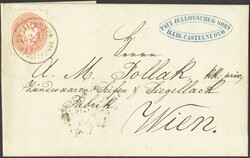 PAUL JELLOUSCHEG SOHN
ILLIR. CASTELNUOVO
Herrn
A. M. Pollak, kk. priv.
Zündwaaren Seifen & Siegellack
Fabrik
Wien.